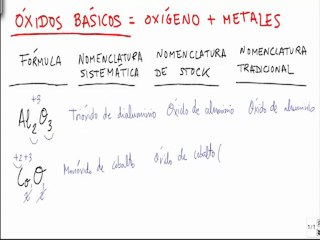 ÓXIDOS BÁSICOS = OXÍGENO + METALES
FÓRMULA NOMENCLATURA SISTEMÁTICA NOMENCLATURA DE STOCK NOMENCLATURA TRADICIONAL
+3
Al2O3 Trióxido de dialuminio Óxido de aluminio Óxido de aluminio
+2+3
CoO Monóxido de cobalto Óxido de cobalto (
2 2
1/1